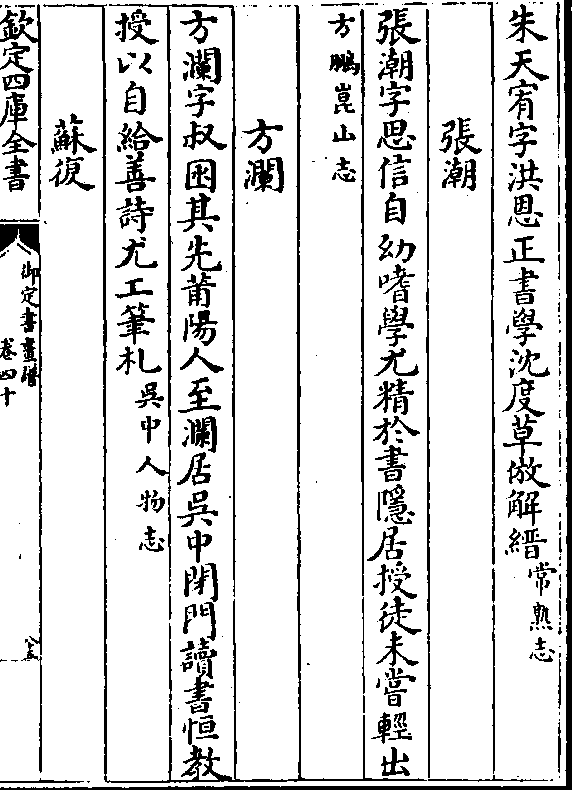 朱天宥字洪恩正書學沈度草倣解縉常熟志
張潮
張潮字思信自幼嗜學尤精於書隱居授徒未嘗輕出
方鵬崑山志
方瀾
方瀾字叔困其先莆陽人至瀾居吳中閉門讀書恒教
授以自給善詩尤工筆札吳中人物志
蘇復
欽定四庫全書
御定書畫譜
卷四十